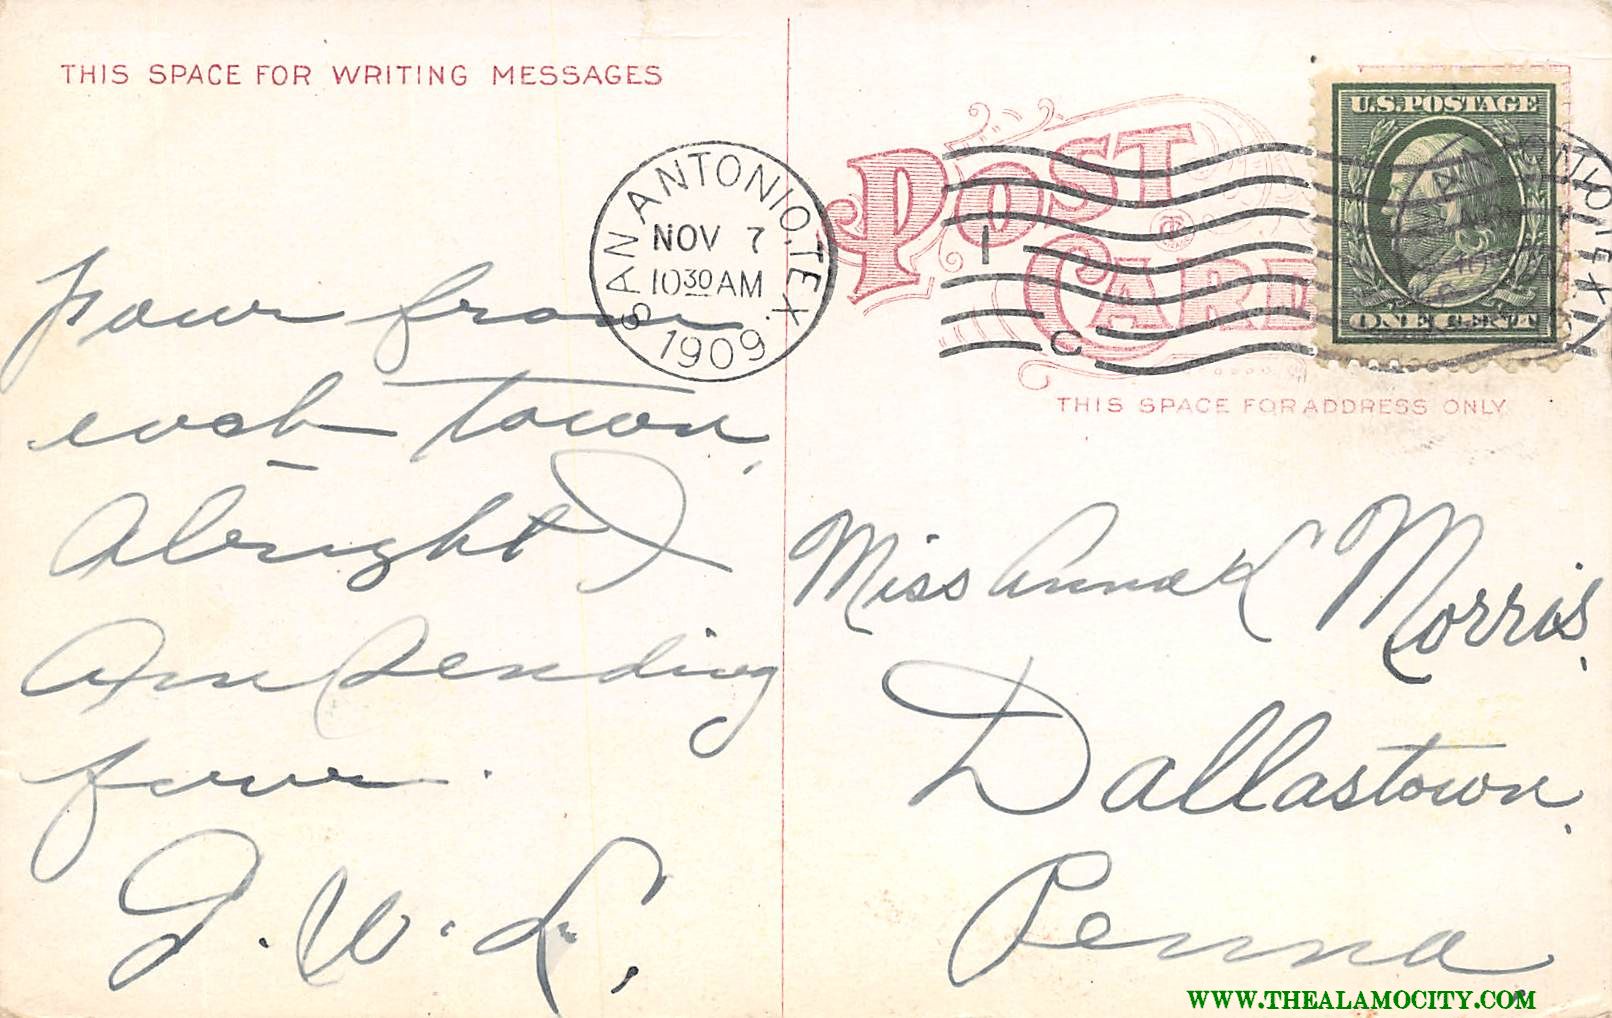 THIS SPACE FOR WRITING MESSAGES
U.S. POSTAGE
ONE CENT
SAN ANTONIO, TEX.
NOV 7
10 30 AM
1909
1
C
POST CARD
THIS SPACE FOR ADDRESS ONLY
Four from
each town.
Alright I
Am sending
four.
G. W. L.
Miss Anna K Morris,
Dallastown,
Penna,
WWW.THEALAMOCITY.COM